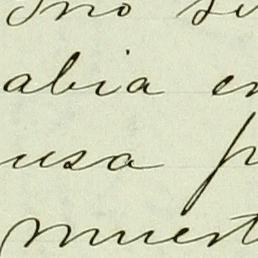 ino se
abia en
usa p
muert